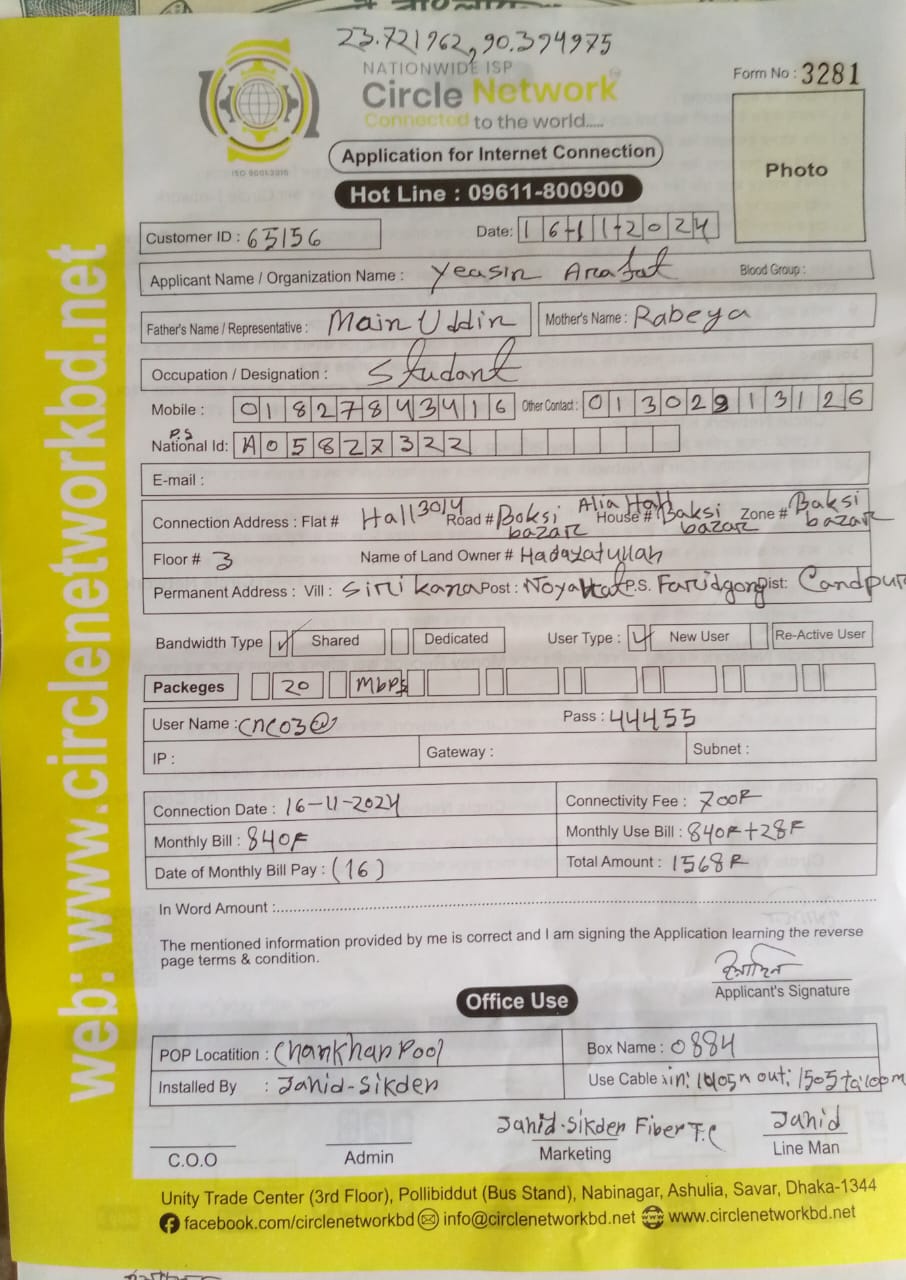 23.721962,90.394975
NATIONWIDE ISP
Form No : 3281
Circle Network
Connected to the world.....
ISO 9001:2015
Application for Internet Connection
Photo
Hot Line : 09611-800900
Customer ID : 65156 Date: 16-11-2024
Applicant Name / Organization Name : Yeasin Arafat Blood Group :
Father's Name / Representative : Main Uddin Mother's Name : Rabeya
Occupation / Designation : Studant
Mobile : 01827843416 Other Contact : 01302913126
P.S
National Id: A05827322
E-mail :
Connection Address : Flat # Hall 3014 Road # Boksi bazar House # Alia Hall Baksi bazar Zone # Baksi bazar
Floor # 3 Name of Land Owner # Hadayatullah
Permanent Address : Vill : Siri kana Post : Noyahat P.S. Faridgong Dist: Candpur
Bandwidth Type Shared Dedicated User Type : New User Re-Active User
Packeges 20 Mbps
User Name : CNC03@ Pass : 44455
IP : Gateway : Subnet :
Connection Date : 16-11-2024 Connectivity Fee : 700F
Monthly Bill : 840F Monthly Use Bill : 840F+28F
Date of Monthly Bill Pay : (16) Total Amount : 1568F
In Word Amount :
The mentioned information provided by me is correct and I am signing the Application learning the reverse
page terms & condition.
ইয়াছিন
Applicant's Signature
Office Use
POP Locatition : Chankhar Pool Box Name : 0884
Installed By : Jahid-Sikder Use Cable : in: out: 1505
Jahid-Sikder Fiber T.C Jahid
C.O.O Admin Marketing Line Man
Unity Trade Center (3rd Floor), Pollibiddut (Bus Stand), Nabinagar, Ashulia, Savar, Dhaka-1344
facebook.com/circlenetworkbd info@circlenetworkbd.net www.circlenetworkbd.net
web: www.circlenetworkbd.net